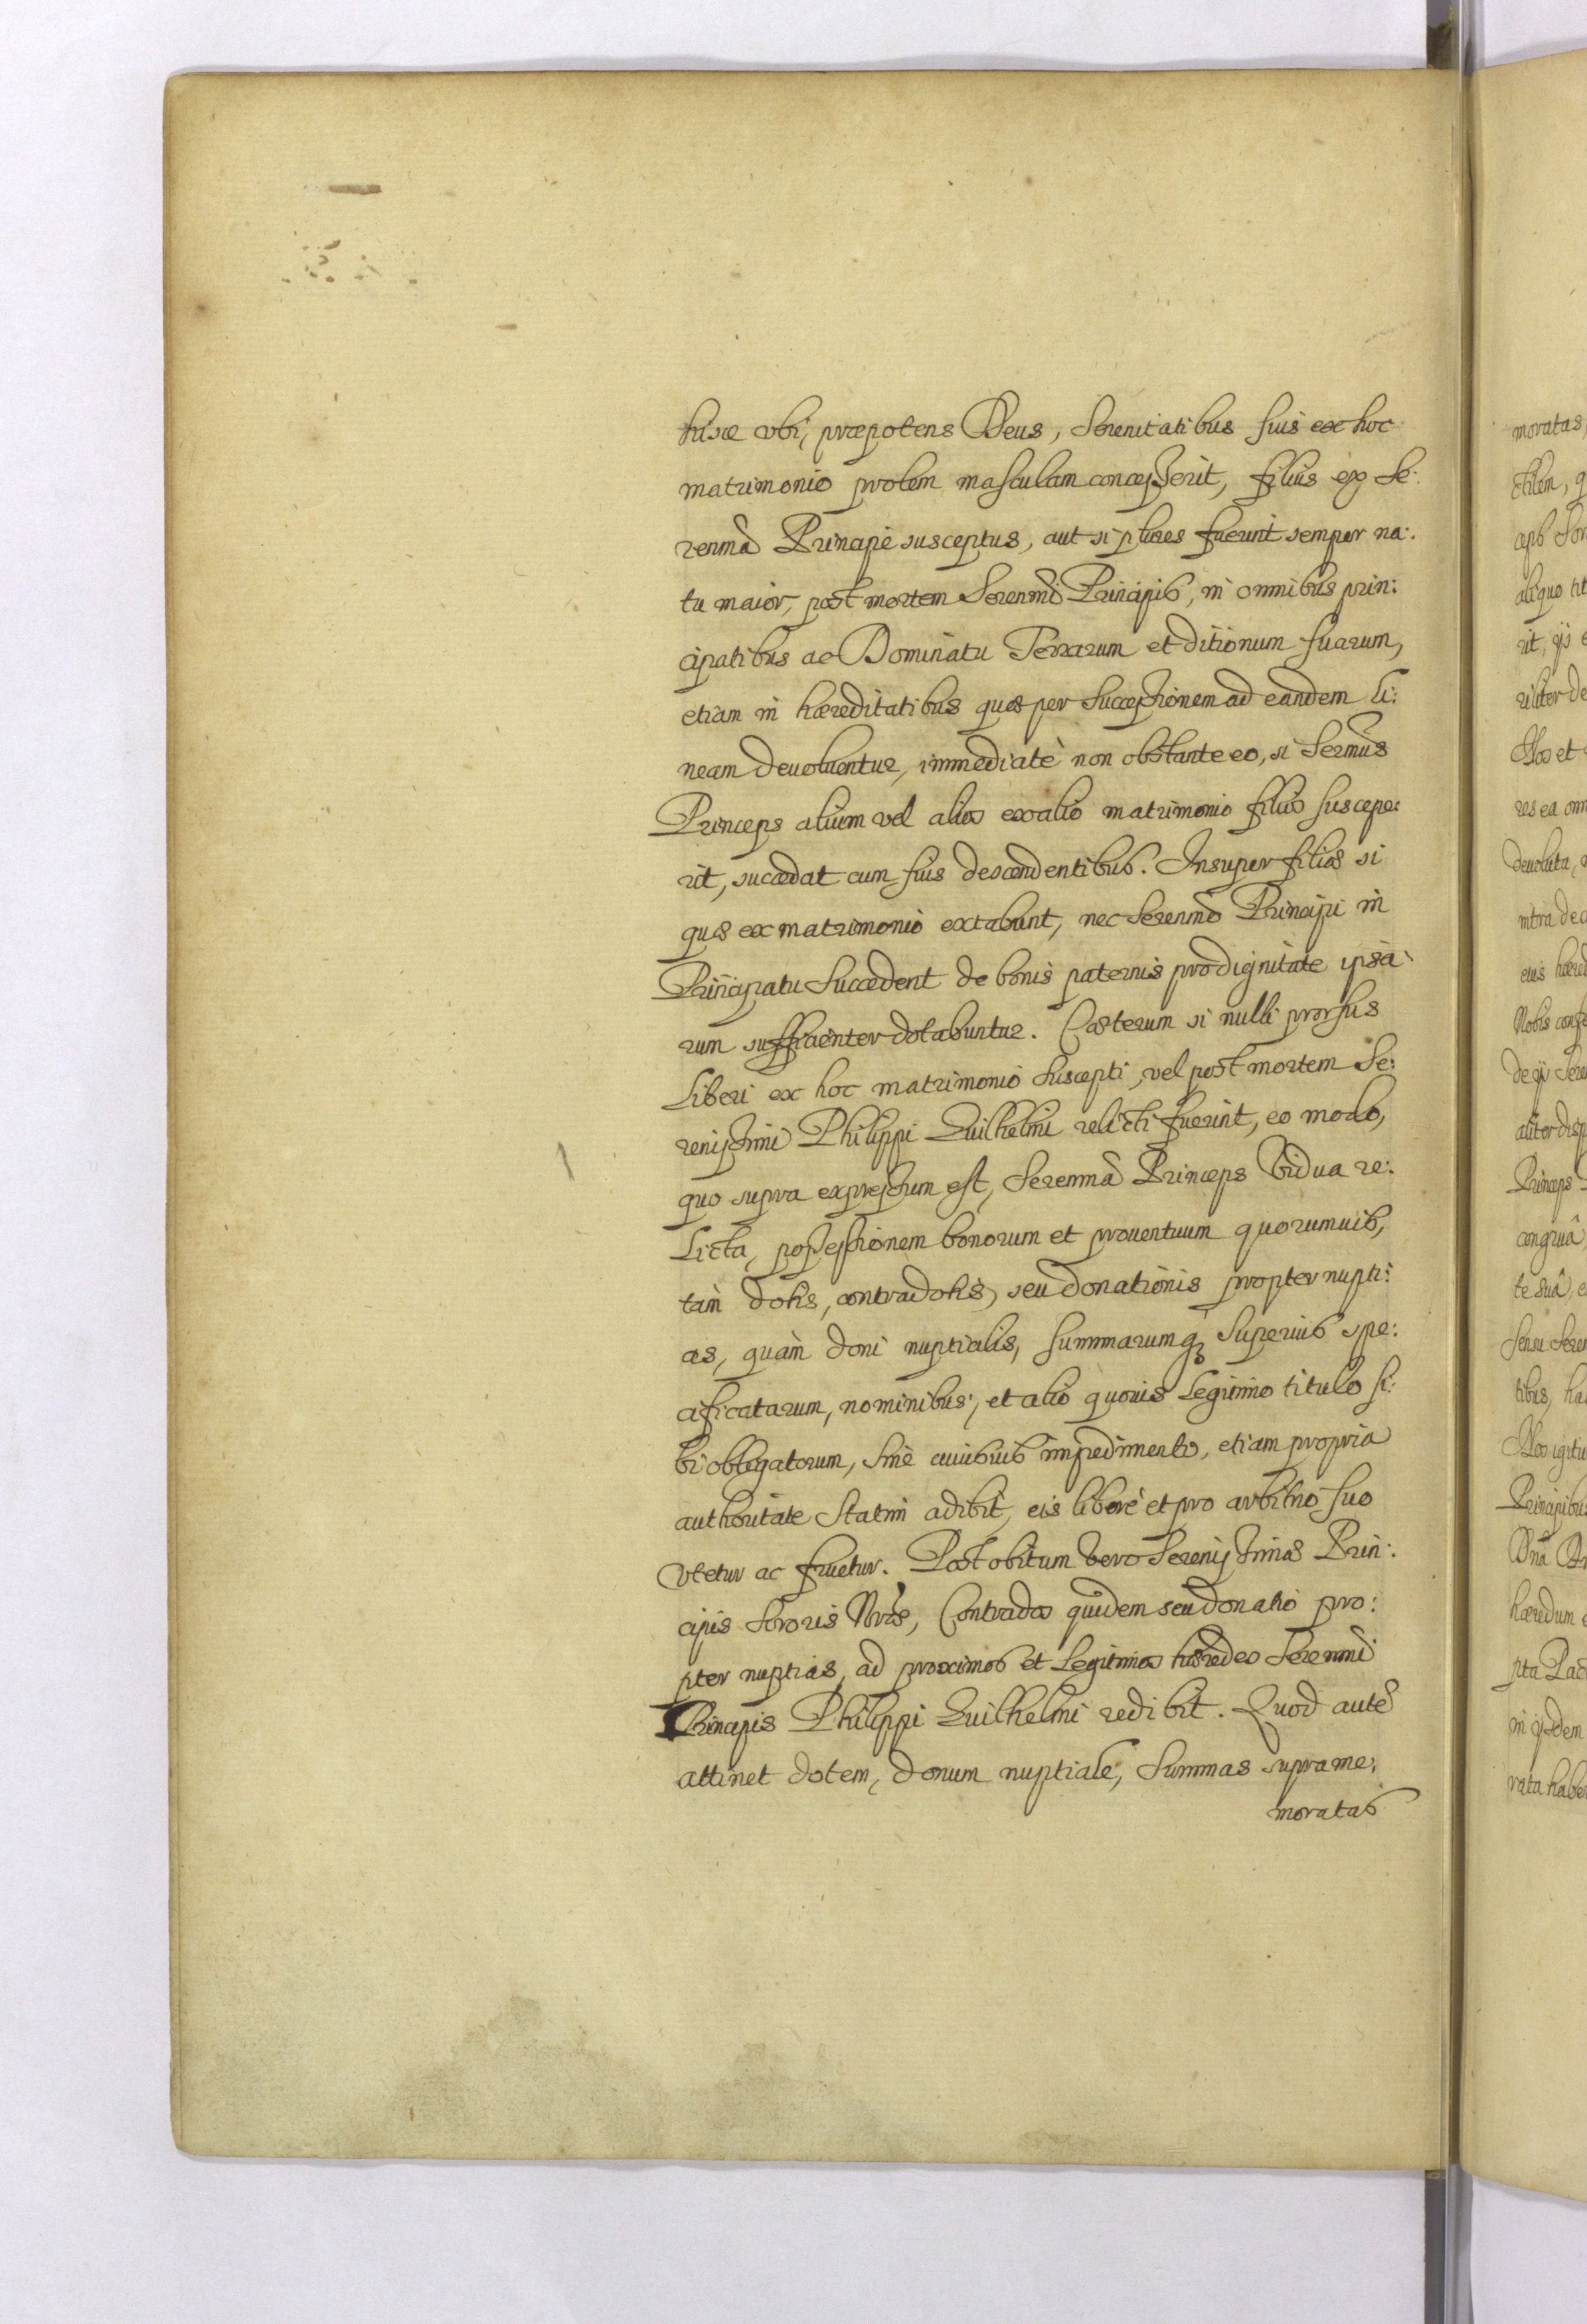 hisce vbi, præpotens Deus, Serenitatibus suis ex hoc
matrimonio prolem masculam concesserit, filius ex Se:
renmâ Principe susceptus, aut si plures fuerint semper na:
tu maior, post mortem Serenmi Principis, in omnibus prin:
cipatibus ac Dominatu Terrarum et ditionum suarum,
etiam in hæreditatibus quæ per Successionem ad eandem li:
neam deuoluentur, immediatè non obstante eo, si Sermus
Princeps alium vel alios ex alio matrimonio filios suscepe:
rit, succedat cum suis descendentibus. Insuper filiæ si
quæ ex matrimonio extabunt, nec Serenmo Principi in
Principatu Succedent de bonis paternis pro dignitate ipsa:
rum sufficienter dotabuntur. Cæterum si nulli prorsus
Liberi ex hoc matrimonio suscepti, vel post mortem Se:
renissimi Philippi Guilhelmi relicti fuerint, eo modo,
quo supra expressum est, Serenmâ Princeps Vidua re:
Licta, possessionem bonorum et prouentuum quorumuis,
tàm dotis, contradotis, seu donationis propter nupti:
as, quàm doni nuptialis, summarumq; Superius spe:
cificatarum, nominibus, et alio quouis Legitimo titulo si:
bi obligatorum, Sinè cuiusuis impedimento, etiam propria
authoritate Statim adibit, eis liberè et pro arbitrio suo
Vtetur ac fruetur. Post obitum vero Serenissimæ Prin:
cipis Sororis Nræ, Contrados quidem seu donatio pro:
pter nuptias, ad proximos et Legitimos hæredes Serenmi
Principis Philippi Guilhelmi redibit. Quod autē
attinet dotem, donum nuptiale, Summas suprame:
moratas
moratas,
aliquo tit
Nos et
res ea om
deuoluta,
intra de
eius hæred
Nobis conse
Princeps
congruâ
te suâ, e
sensu Sere
tibus, ha
Nos igitu
Principibus
hæredum e
pta Pac
rata habe